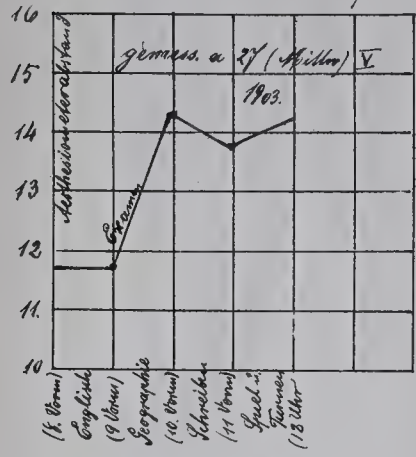 16
15
14
13
12
11.
10
Aesthesiometerabstand
gemess. a 27 (Mittw) V
1903.
Examen
(8. Vorm)
Englisch
(9 Vorm)
Geographie
(10. Vorm)
Schreiben
(11 Vorm)
Spiel u.
Turnen
(12 Uhr